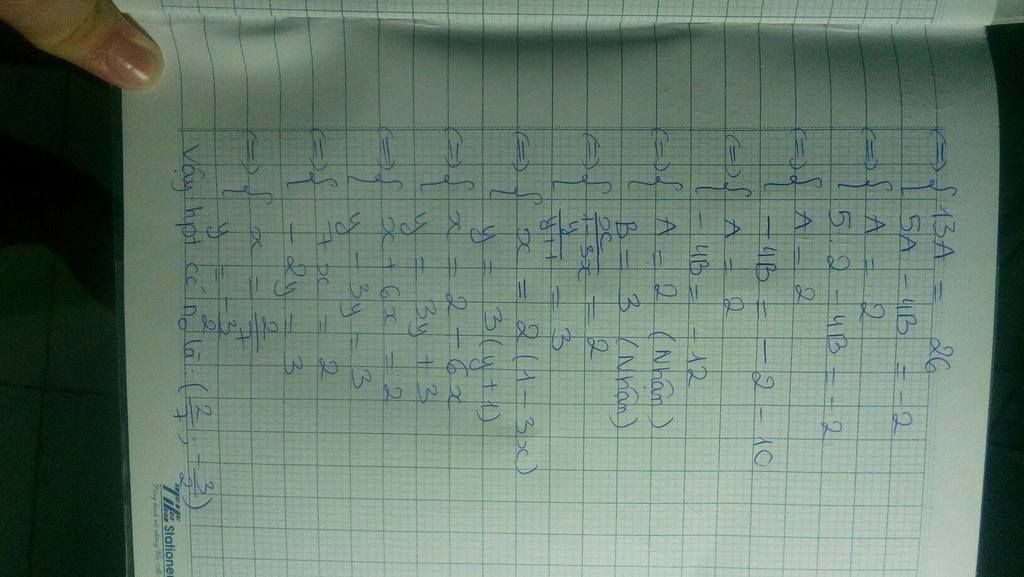 ⇔ { 13A = 26
5A - 4B = -2
⇔ { A = 2
5.2 - 4B = -2
⇔ { A = 2
-4B = -2 - 10
⇔ { A = 2
-4B = -12
⇔ { A = 2 (Nhận)
B = 3 (Nhận)
⇔ { x/(1-3x) = 2
y/(y+1) = 3
⇔ { x = 2(1 - 3x)
y = 3(y+1)
⇔ { x = 2 - 6x
y = 3y + 3
⇔ { x + 6x = 2
y - 3y = 3
⇔ { 7x = 2
-2y = 3
⇔ { x = 2/7
y = -3/2
Vậy hpt có no là: (2/7; -3/2)
Stationery